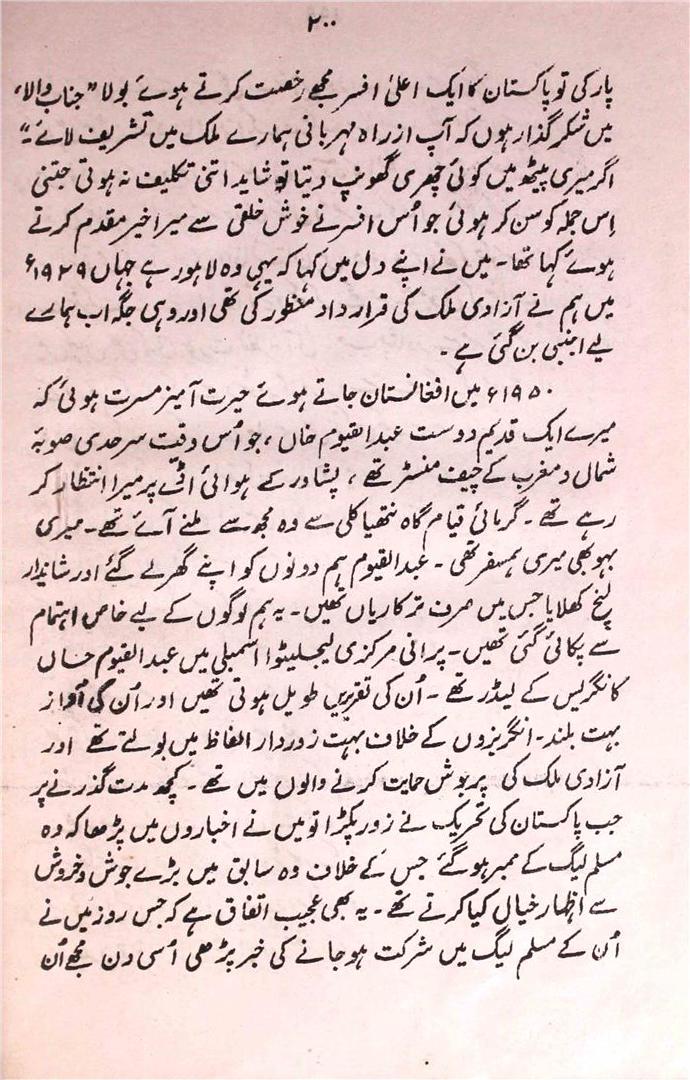 ۲۰۰
پار کی تو پاکستان کا ایک اعلیٰ افسر مجھے رخصت کرتے ہوئے بولا "جناب والا،
میں شکر گذار ہوں کہ آپ از راہ مہربانی ہمارے ملک میں تشریف لائے۔"
اگر میری پیٹھ میں کوئی چھری گھونپ دیتا تو شاید اتنی تکلیف نہ ہوتی جتنی
اِس جملہ کو سن کر ہوئی جو اُس افسر نے خوش خلقی سے میرا خیر مقدم کرتے
ہوئے کہا تھا۔ میں نے اپنے دل میں کہا کہ یہی وہ لاہور ہے جہاں ۱۹۲۹ء
میں ہم نے آزادی ملک کی قرار داد منظور کی تھی اور وہی جگہ اب ہمارے
لیے اجنبی بن گئی ہے۔
۱۹۵۰ء میں افغانستان جاتے ہوئے حیرت آمیز مسرت ہوئی کہ
میرے ایک قدیم دوست عبدالقیوم خاں، جو اُس وقت سرحدی صوبۂ
شمال و مغرب کے چیف منسٹر تھے، پشاور کے ہوائی اڈّے پر میرا انتظار کر
رہے تھے۔ گرمائی قیام گاہ نتھیا گلی سے وہ مجھ سے ملنے آئے تھے۔ میری
بہو بھی میری ہمسفر تھی۔ عبدالقیوم ہم دونوں کو اپنے گھر لے گئے اور شاندار
لنچ کھلایا جس میں صرف ترکاریاں تھیں۔ یہ ہم لوگوں کے لیے خاص اہتمام
سے پکائی گئی تھیں۔ پرانی مرکزی لیجسلیٹو اسمبلی میں عبدالقیوم خاں
کانگریس کے لیڈر تھے۔ اُن کی تقریریں طویل ہوتی تھیں اور اُن کی آواز
بہت بلند۔ انگریزوں کے خلاف بہت زوردار الفاظ میں بولتے تھے اور
آزادی ملک کی پرجوش حمایت کرنے والوں میں تھے۔ کچھ مدت گذرنے پر
جب پاکستان کی تحریک نے زور پکڑا تو میں نے اخباروں میں پڑھا کہ وہ
مسلم لیگ کے ممبر ہو گئے جس کے خلاف وہ سابق میں بڑے جوش و خروش
سے اظہار خیال کیا کرتے تھے۔ یہ بھی عجیب اتفاق ہے کہ جس روز میں نے
اُن کے مسلم لیگ میں شرکت ہو جانے کی خبر پڑھی اُسی دن مجھے اُن